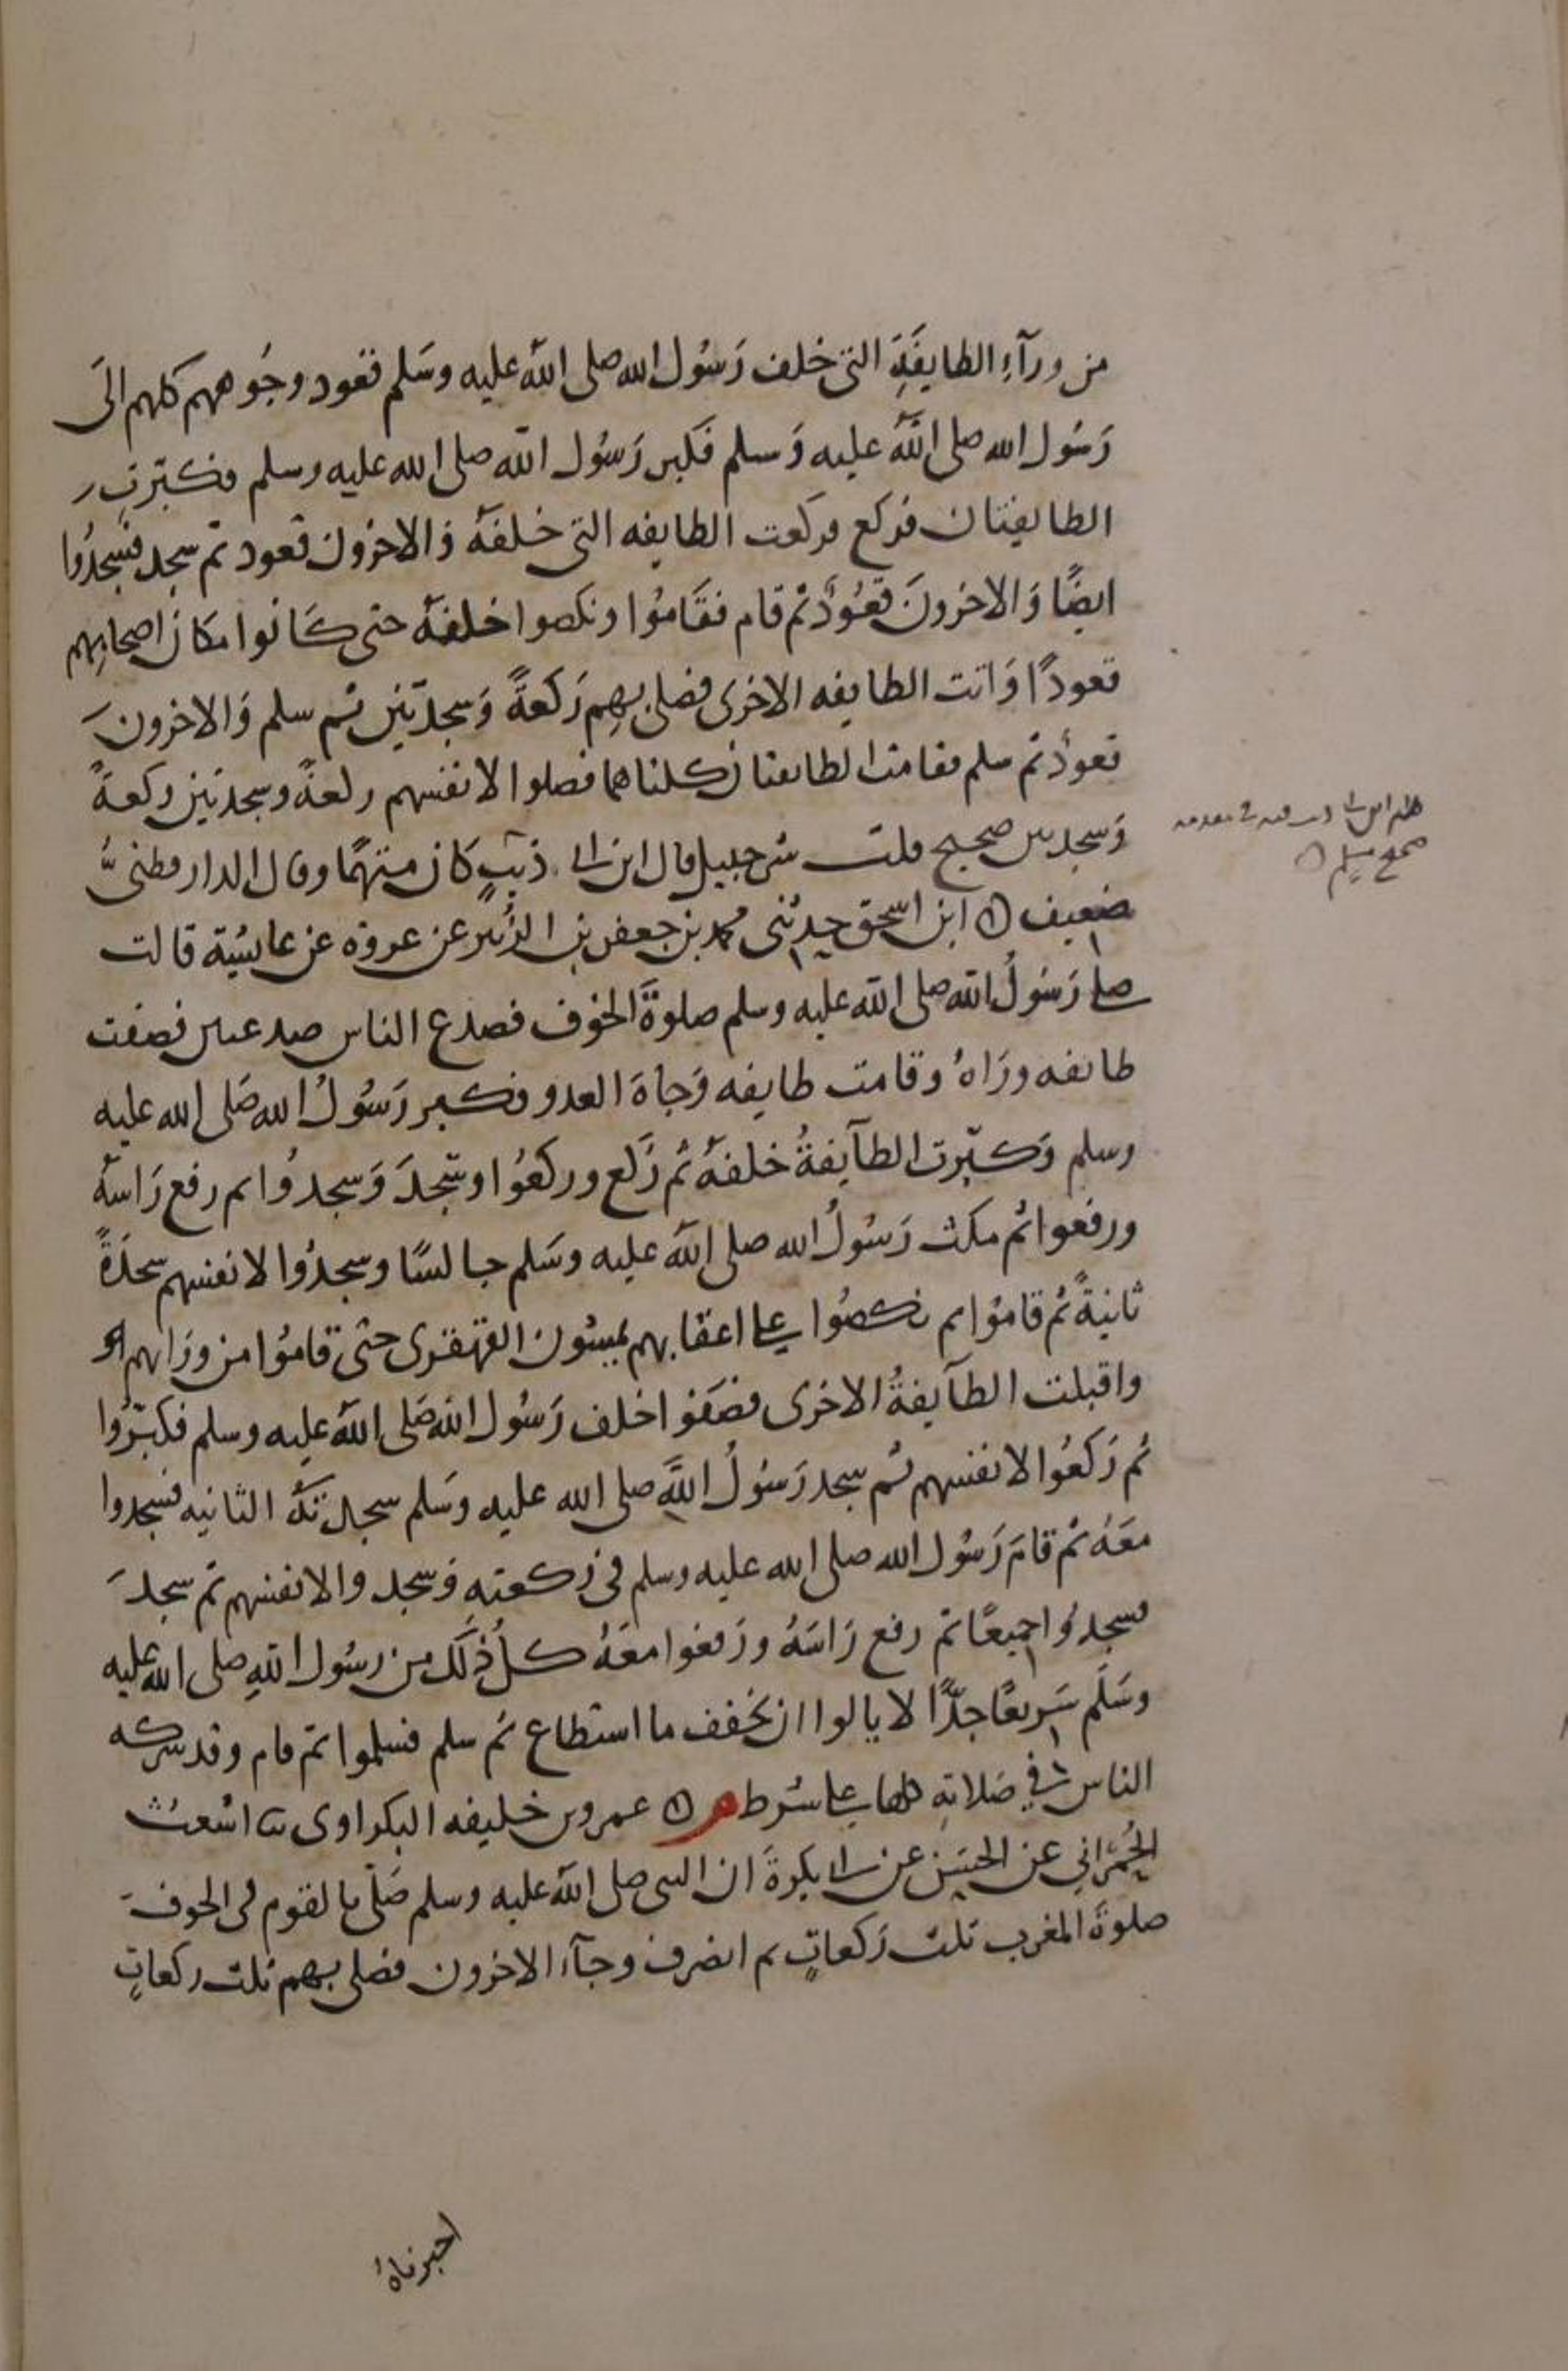 من ورآءِ الطايفَةِ التى خلف رَسُول الله صلى الله عليه وسَلم قعود وجُوههم كلهم الَى
رَسُول الله صلى اللَّه عليه وَسلم فكبر رَسُول الله صلى الله عليه وسلم فكبّرتِ
الطايفتان فركع فركعت الطايفه التى خلفهُ وَالاخرون قعود ثم سجد فسجدُوا
ايضًا وَالاخرونَ قعُودٌ ثم قام فقَامُوا ونكصوا خلفهُ حتى كَانوا مكَان اصحابِهم
قعودًا وَاتت الطايفه الاخرى فصلى بهِم رَكعةً وَسجدتَين ثم سلم وَالاخرونَ
قعودٌ ثم سلم فقامت الطايفتان كلتاهما فصلوا لانفسهم ركعةً وسجدتين ركعةً
وَسجدتين صحيح قلت شرحبيل قال ابن ابى ذيبٍ كان متهمًا وقال الدارقطنىُّ
ضعيف ابن اسحق حدثنى محمد بن جعفر بن الزُبير عن عروة عن عايشة قالت
صلى رَسُولُ الله صلى الله عليه وسلم صلوةَ الخوف فصدع الناس صدعين فصفت
طايفه ورَاهُ وقامت طايفه وَجاهَ العدو فكبر رَسُولُ الله صَلى الله عليه
وسلم وَكبّرت الطآيفةُ خلفهُ ثم رَكع وركعُوا وسَجدَ وَسجدُوا ثم رفع رَاسهُ
ورفعوا ثم مكث رَسُولُ الله صلى الله عليه وسَلم جالسًا وسجدُوا لانفسهم سجدَةً
ثانيةً ثم قامُوا ثم نكصُوا على اعقابهم يمشون القهقرى حتى قامُوا من ورَايهم
واقبلت الطآيفةُ الاخرى فصَفوا خلف رَسُول الله صَلى الله عليه وسلم فكبّرُوا
ثم رَكعُوا لانفسهم ثم سجد رَسُولُ اللَّهِ صلى الله عليه وسَلم سجدتهُ الثانيه فسجدوا
معَهُ ثم قامَ رَسُول الله صلى الله عليه وسلم فى رَكعتهِ وَسجدوا لانفسهم ثم سجدَ
فسجدُوا جميعًا ثم رفع رَاسَهُ ورَفعوا معَهُ كلُ ذَلك من رسُول اللهِ صلى الله عليه
وسَلَم سَريعًا جدًّا لا يالوا ان يخفف ما استطاع ثم سلم فسلموا ثم قام وقد شركه
الناس فى صَلاتهِ كلها على شرط م عمرو بن خليفه البكراوى ثنا اشعث
الحُمرانى عن الحسَن عن ابى بكرةَ ان النبى صلى الله عليه وسلم صَلى بالقوم فى الخوف
صلوةَ المغرب ثلث رَكعاتٍ ثم انصرف وجآء الاخرون فصلى بهم ثلث ركعاتٍ
صحيح مسلم
اخبرناهُ